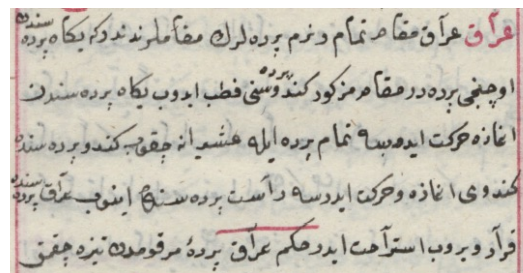 عراق عراق مقامر تمام ونرم پرده لرك مقاملرنددر كه يكاه پرده سندن
اوچنجی پرده در مقام مزكور كندو پرده سنی قطب ايدوب يكاه پرده سندن
اغازه حركت ايدرسه تمام پرده ايله عشيرانه چقوب كندو پرده سنده
كندوی اغازه وحركت ايدرسه راست پرده سنه اينوب عراق پرده سنده
قرار ويروب استراحت ايدر حكم عراق پردهٔ مرقومدن تيزه چقمق